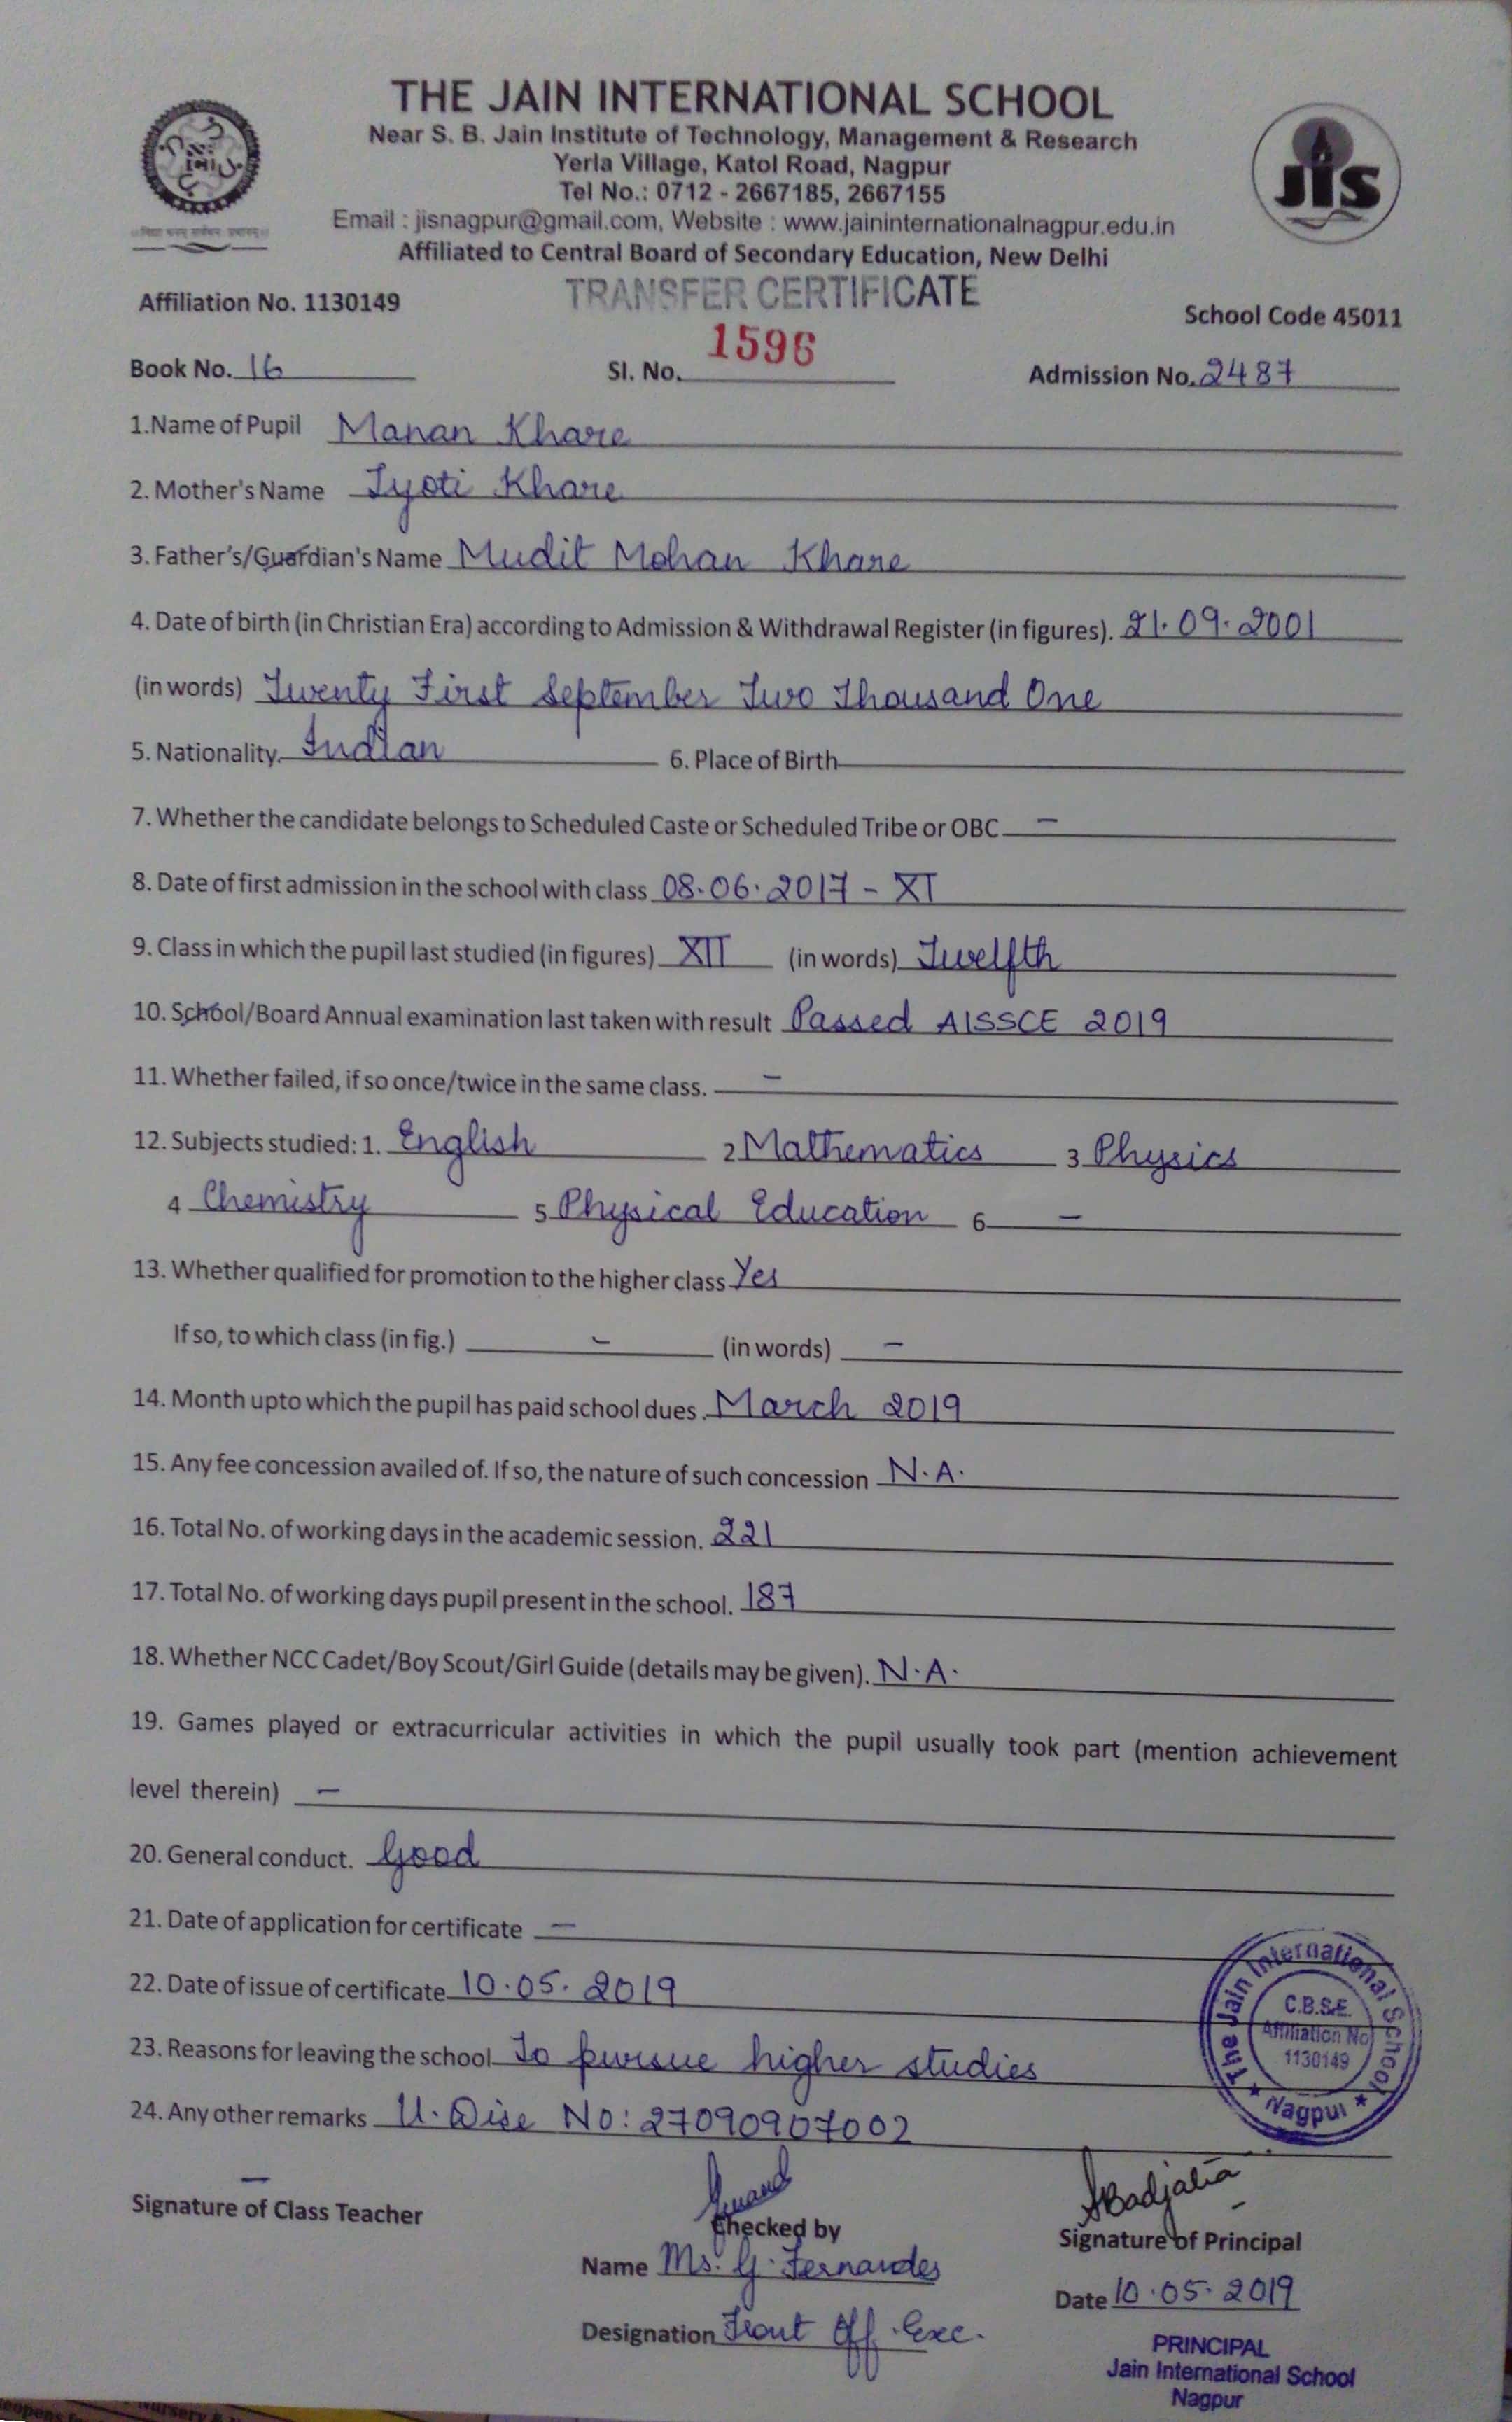 THE JAIN INTERNATIONAL SCHOOL
Near S. B. Jain Institute of Technology, Management & Research
Yerla Village, Katol Road, Nagpur
Tel No.: 0712 - 2667185, 2667155
Email : jisnagpur@gmail.com, Website : www.jaininternationalnagpur.edu.in
Affiliated to Central Board of Secondary Education, New Delhi
jis
TRANSFER CERTIFICATE
Affiliation No. 1130149
School Code 45011
Book No. 16 Sl. No. 1596 Admission No. 2487
1.Name of Pupil Manan Khare
2. Mother's Name Jyoti Khare
3. Father's/Guardian's Name Mudit Mohan Khare
4. Date of birth (in Christian Era) according to Admission & Withdrawal Register (in figures). 21.09.2001
(in words) Twenty First September Two Thousand One
5. Nationality. Indian 6. Place of Birth
7. Whether the candidate belongs to Scheduled Caste or Scheduled Tribe or OBC –
8. Date of first admission in the school with class 08.06.2017 - XI
9. Class in which the pupil last studied (in figures) XII (in words) Twelfth
10. School/Board Annual examination last taken with result Passed AISSCE 2019
11. Whether failed, if so once/twice in the same class. –
12. Subjects studied: 1. English 2 Mathematics 3 Physics
4 Chemistry 5 Physical Education 6 –
13. Whether qualified for promotion to the higher class Yes
If so, to which class (in fig.) – (in words) –
14. Month upto which the pupil has paid school dues. March 2019
15. Any fee concession availed of. If so, the nature of such concession N.A.
16. Total No. of working days in the academic session. 221
17. Total No. of working days pupil present in the school. 187
18. Whether NCC Cadet/Boy Scout/Girl Guide (details may be given). N.A.
19. Games played or extracurricular activities in which the pupil usually took part (mention achievement
level therein) –
20. General conduct. Good
21. Date of application for certificate –
22. Date of issue of certificate 10.05.2019
23. Reasons for leaving the school To pursue higher studies
24. Any other remarks U.Dise No: 27090907002
The Jain International School
C.B.S.E.
Affiliation No
1130149
★ Nagpur ★
–
Signature of Class Teacher
Checked by
ABadjatia
Signature of Principal
Name Ms. G. Fernandes
Date 10.05.2019
Designation Front Off. Exc.
PRINCIPAL
Jain International School
Nagpur